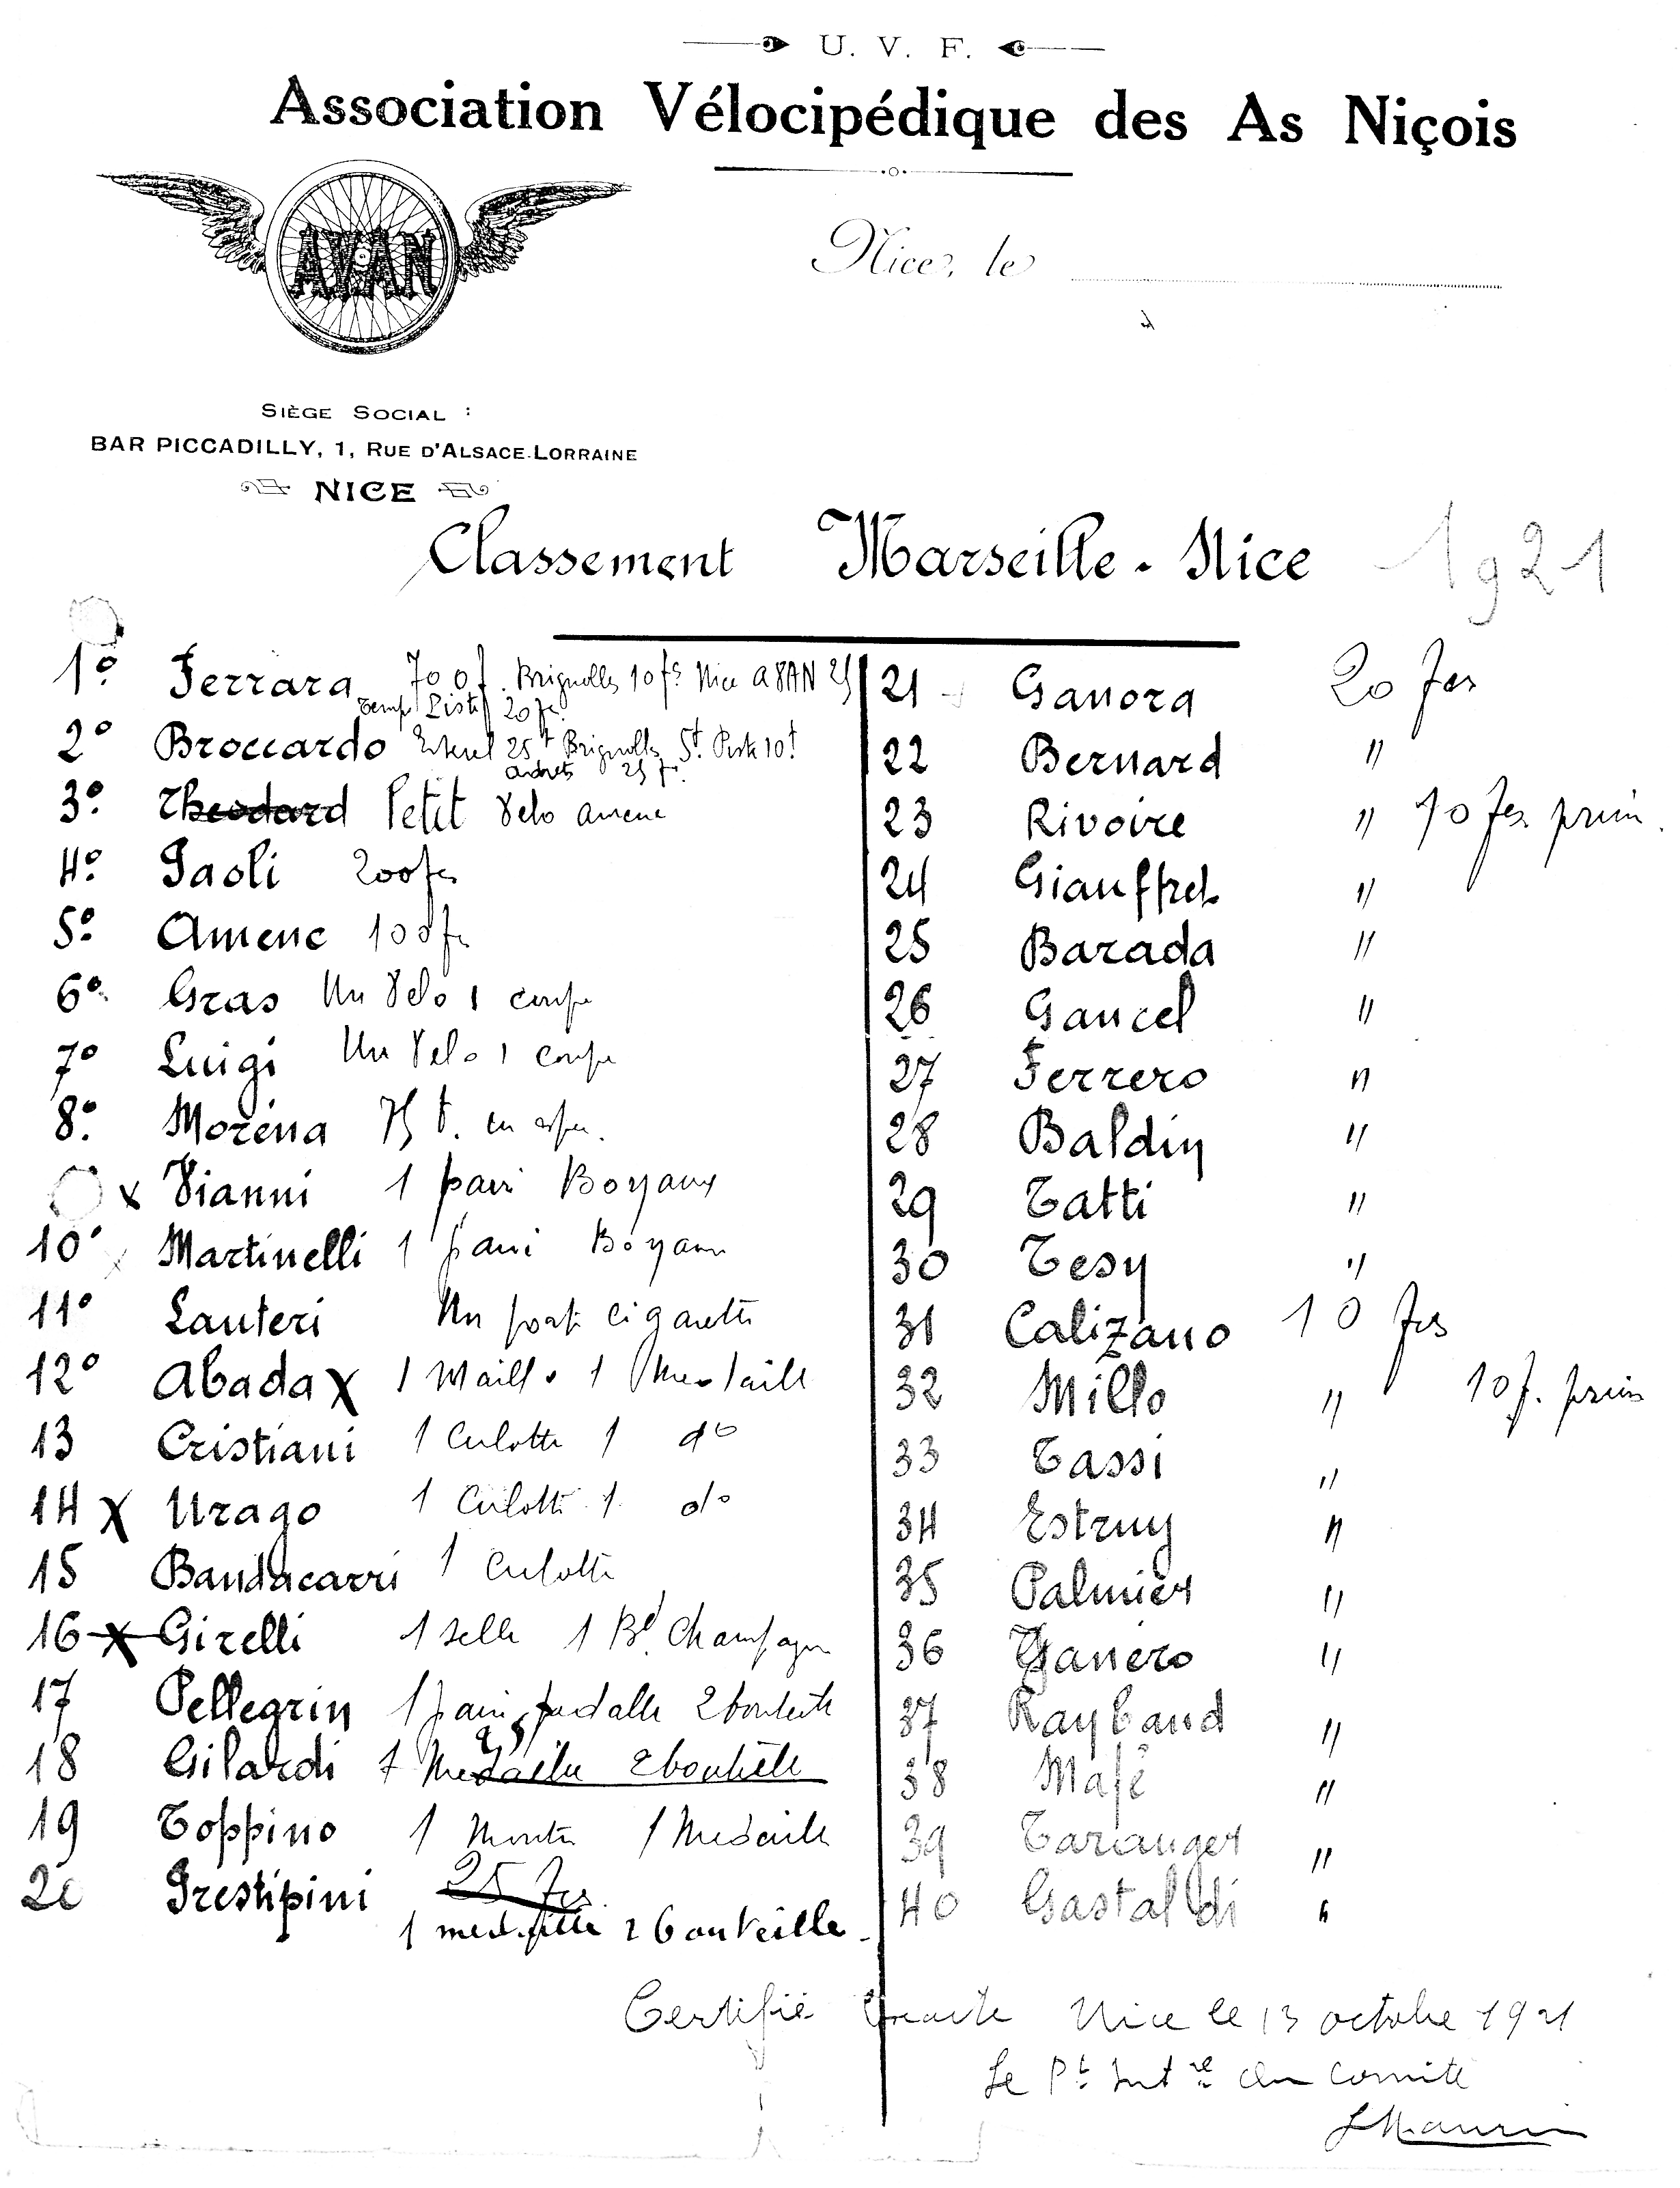 U. V. F.
Association Vélocipédique des As Niçois
AVAN
Nice, le
SIÈGE SOCIAL :
BAR PICCADILLY, 1, RUE D'ALSACE-LORRAINE
NICE
Classement Marseille - Nice 1921
1º Ferrara 700f. Brignolles 10 fs Nice AVAN 25
Piste 20 fr.
2º Broccardo Esterel 25f Brignolles 5f 10f
25 f.
3º Theodard Petit Velo
4º Paoli 200 frs
5º Amenc 100 fr
6º Gras Un Velo 1 coupe
7º Luigi Un Velo 1 coupe
8º Moréna 75 f. en
x Vianni 1 pair Boyaux
10º Martinelli 1 pair Boyaux
11º Lauteri Un porte cigarette
12º Abada X 1 Maillo 1 Medaille
13 Cristiani 1 Culotte 1 dº
14 X Urago 1 Culotte 1 dº
15 Bandacarri 1 Culotte
16 X Girelli 1 selle 1 Bl Champagne
17 Pellegrin 1 pair pedalle 2 bouteille
18 Gilardi 1 Medaille 2 bouteille
19 Toppino 1 Montre 1 Medaille
20 Prestipini 25 frs
1 medaille 2 bouteille
21 Ganora 20 frs
22 Bernard "
23 Rivoire " 10 frs prim
24 Giauffret "
25 Barada "
26 Gancel "
27 Ferrero "
28 Baldin "
29 Tatti "
30 Tesy "
31 Calizano 10 frs
32 Millo " 10 f. prim
33 Tassi "
34 Estruy "
35 Palmier "
36 Ganero "
37 Raybaud "
38 Mafé "
39 Taranger "
40 Gastaldi "
Certifié Exacte Nice le 13 octobre 1921
Le Pt du comite